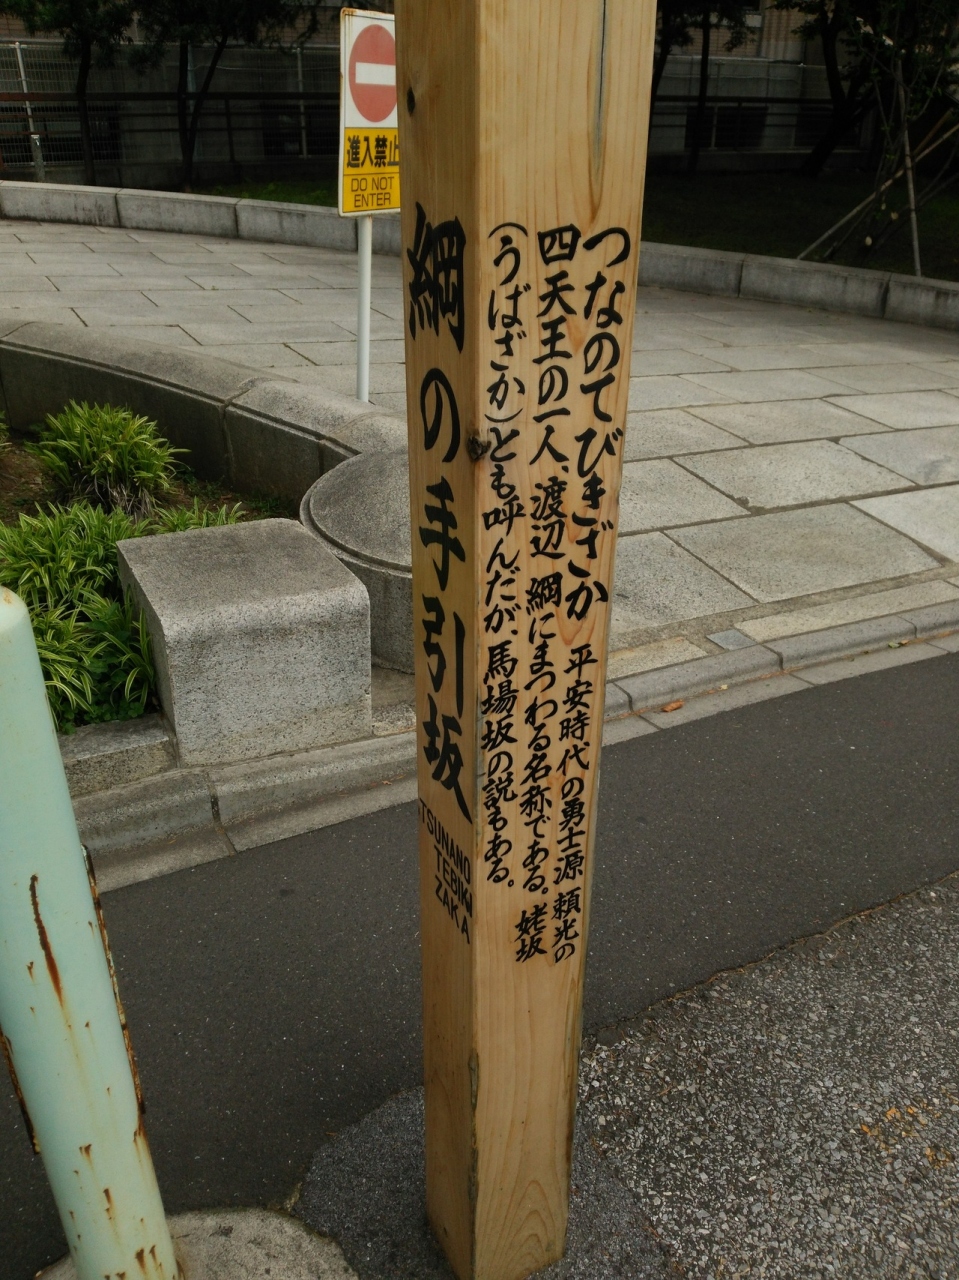 進入禁止
DO NOT
ENTER
綱の手引坂
TSUNANO
TEBIKI
ZAKA
つなのてびきざか 平安時代の勇士源 頼光の
四天王の一人、渡辺 綱にまつわる名称である。姥坂
(うばざか)とも呼んだが、馬場坂の説もある。